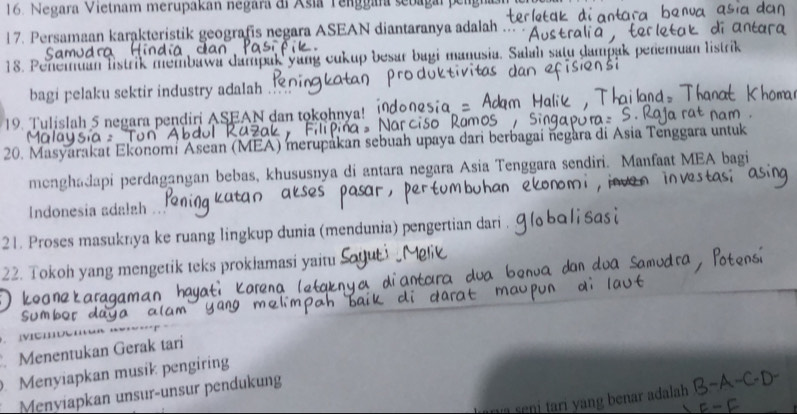 16. Negara Vietnam merupakan negara di Asia Tenggara sebagai
terletak di antara benua asia dan
17. Persamaan karakteristik geografis negara ASEAN diantaranya adalah ... Australia, terletak di antara
Samudra Hindia dan Pasifik.
18. Penemuan listrik membawa dampak yang cukup besar bagi manusia. Salah satu dampak penemuan listrik
bagi pelaku sektir industry adalah ..... Peningkatan produktivitas dan efisiensi
19. Tulislah 5 negara pendiri ASEAN dan tokohnya! indonesia = Adam Malik, Thailand = Thanat Khoman
Malaysia = Tun Abdul Razak, Filipina = Narciso Ramos, Singapura = S. Raja rat nam.
20. Masyarakat Ekonomi Asean (MEA) merupakan sebuah upaya dari berbagai negara di Asia Tenggara untuk
menghadapi perdagangan bebas, khususnya di antara negara Asia Tenggara sendiri. Manfaat MEA bagi
Indonesia adalah ... Pening katan akses pasar, pertumbuhan ekonomi, investasi asing
21. Proses masuknya ke ruang lingkup dunia (mendunia) pengertian dari . globalisasi
22. Tokoh yang mengetik teks proklamasi yaitu Sayuti Melik
keanekaragaman hayati karena letaknya diantara dua benua dan dua samudra, Potensi
sumber daya alam yang melimpah baik di darat maupun di laut
Menentukan Gerak tari
Menyiapkan musik pengiring
Menyiapkan unsur-unsur pendukung
seni tari yang benar adalah B-A-C-D-
E-F